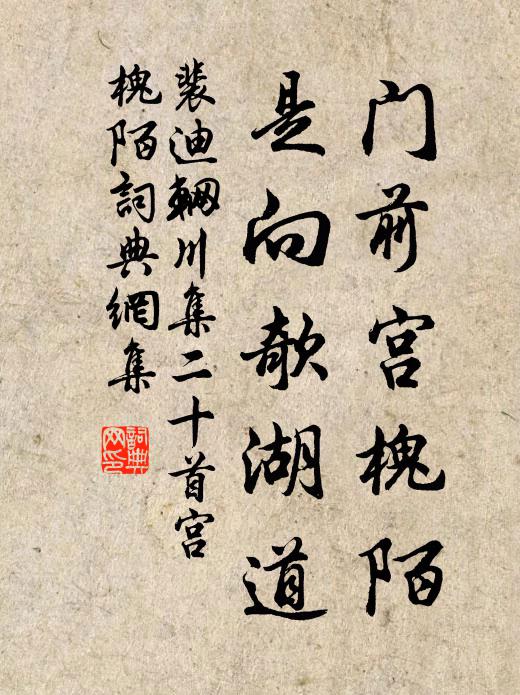 门前宫槐陌
是向欹湖道
裴迪輞川集二十首宫
槐陌詞典網集
詞典
网印